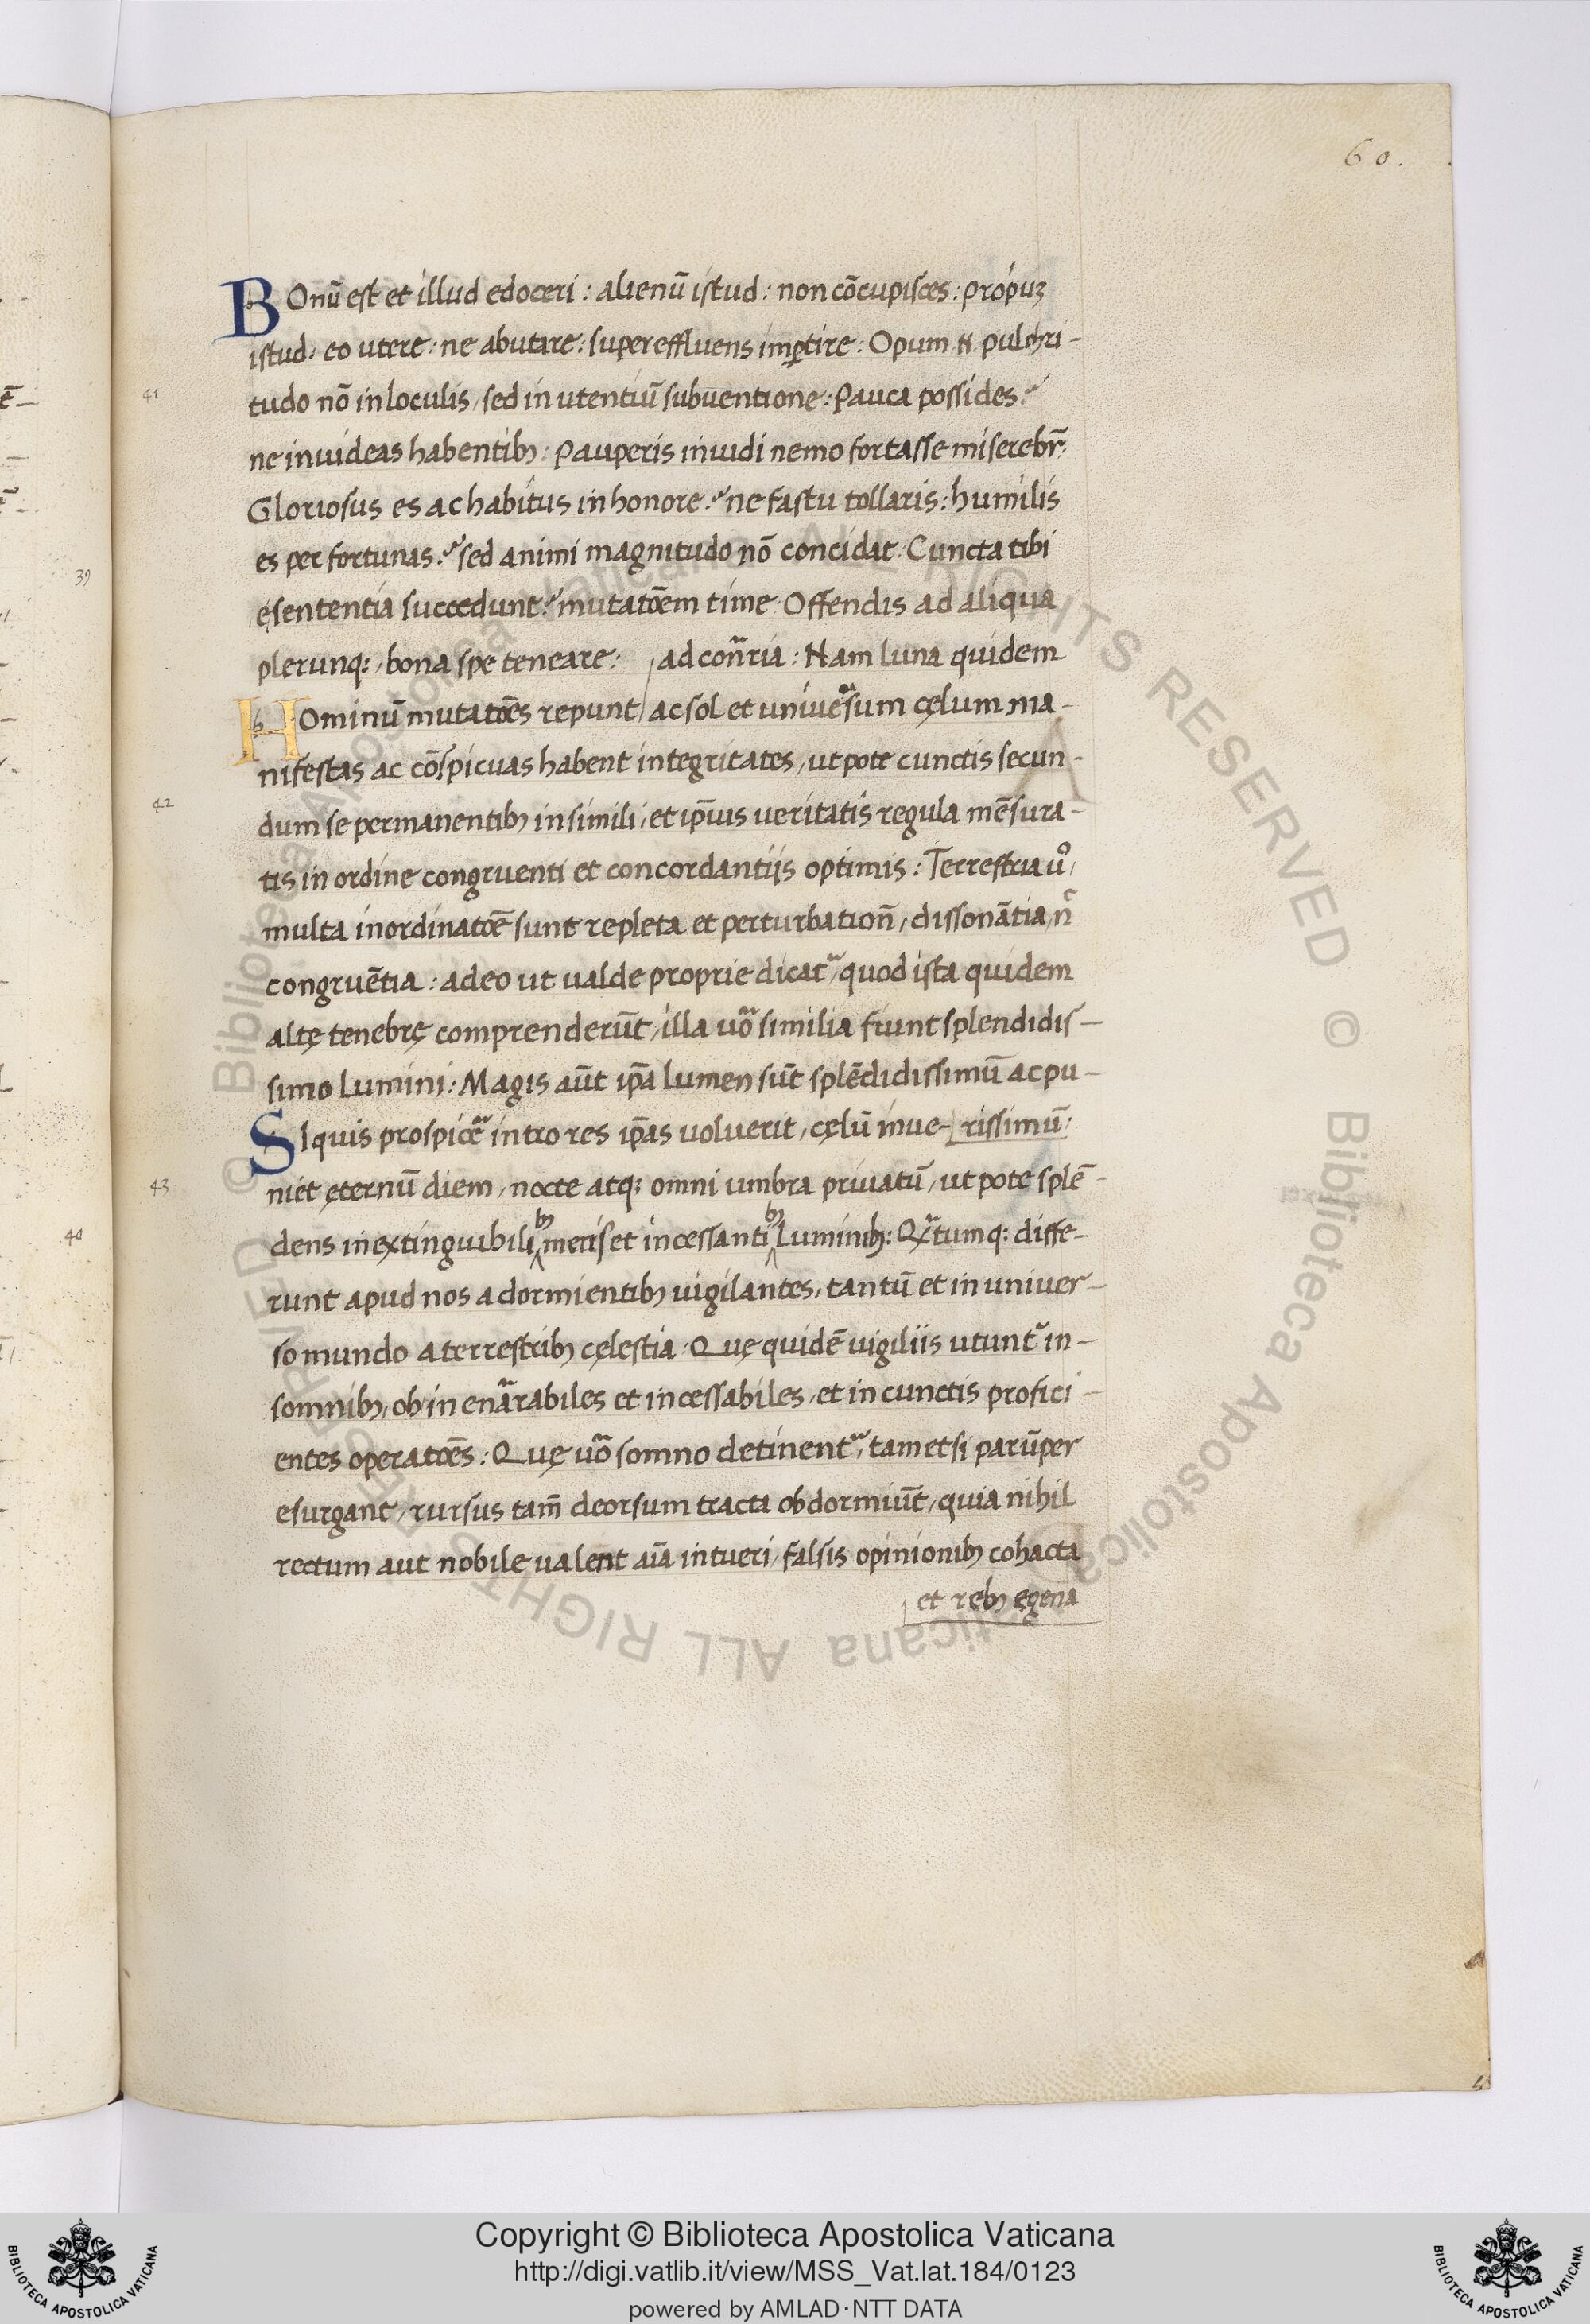 60.
BOnū est et illud edoceri : alienū istud : non cōcupisces : propuʒ
istud, eo utere : ne abutare : supereffluens imꝑtire : Opum .N. pulchri-
41
tudo nō in loculis, sed in utentiū subuentione : Pauca possides :
ne inuideas habentibꝫ : Pauperis inuidi nemo fortasse miserebr̄ :
Gloriosus es ac habitus in honore : ne fastu tollaris : humilis
es per fortunas : sed animi magnitudo nō concidat . Cuncta tibi
39
e sententia succedunt : mutatōem time . Offendis ad aliqua
plerunqꝫ, bona spe teneare : ad con̄ria : Nam luna quidem
HOminū mutatōes repunt ac sol et uniuersum cęlum ma-
nifestas ac cōspicuas habent integritates, ut pote cunctis secun-
42
dum se permanentibꝫ in simili, et ip̄ius ueritatis regula mēsura-
tis in ordine congruenti et concordantijs optimis : Terrestria uº,
multa inordinatōe sunt repleta et perturbation̄, dissonātia, n̄
congruētia : adeo ut ualde proprie dicat᷑, quod ista quidem
altę tenebrę comprenderūt, illa uō similia fiunt splendidis-
simo Lumini : Magis aūt ip̄a lumen sūt splēdidissimū ac pu-
SIquis prospicē intro res ip̄as uoluerit, cęlū inue- rissimū :
43
niet ęternū diem, nocte atqꝫ omni umbra priuatū, ut pote splē-
bꝫ bꝫ
40
dens inextinguibili meris et incessanti Luminibꝫ : Qᷓtumqꝫ : diffe-
runt apud nos a dormientibꝫ uigilantes, tantū et in uniuer-
so mundo a terrestribꝫ cęlestia . Quę quidē uigiliis utunt᷑ in-
somnibꝫ, ob inenarrabiles et incessabiles, et in cunctis profici-
entes operatōes : Quę uō somno detinent᷑, tametsi parūper
esurgant, rursus tam̄ deorsum tracta obdormiūt, quia nihil
rectum aut nobile ualent aīa intueri, falsis opinionibꝫ cohacta
et rebꝫ egena
© Biblioteca Apostolica Vaticana ALL RIGHTS RESERVED © Biblioteca Apostolica Vaticana ALL RIGHTS RESERVED
BIBLIOTECA APOSTOLICA VATICANA
Copyright © Biblioteca Apostolica Vaticana
http://digi.vatlib.it/view/MSS_Vat.lat.184/0123
powered by AMLAD·NTT DATA
BIBLIOTECA APOSTOLICA VATICANA